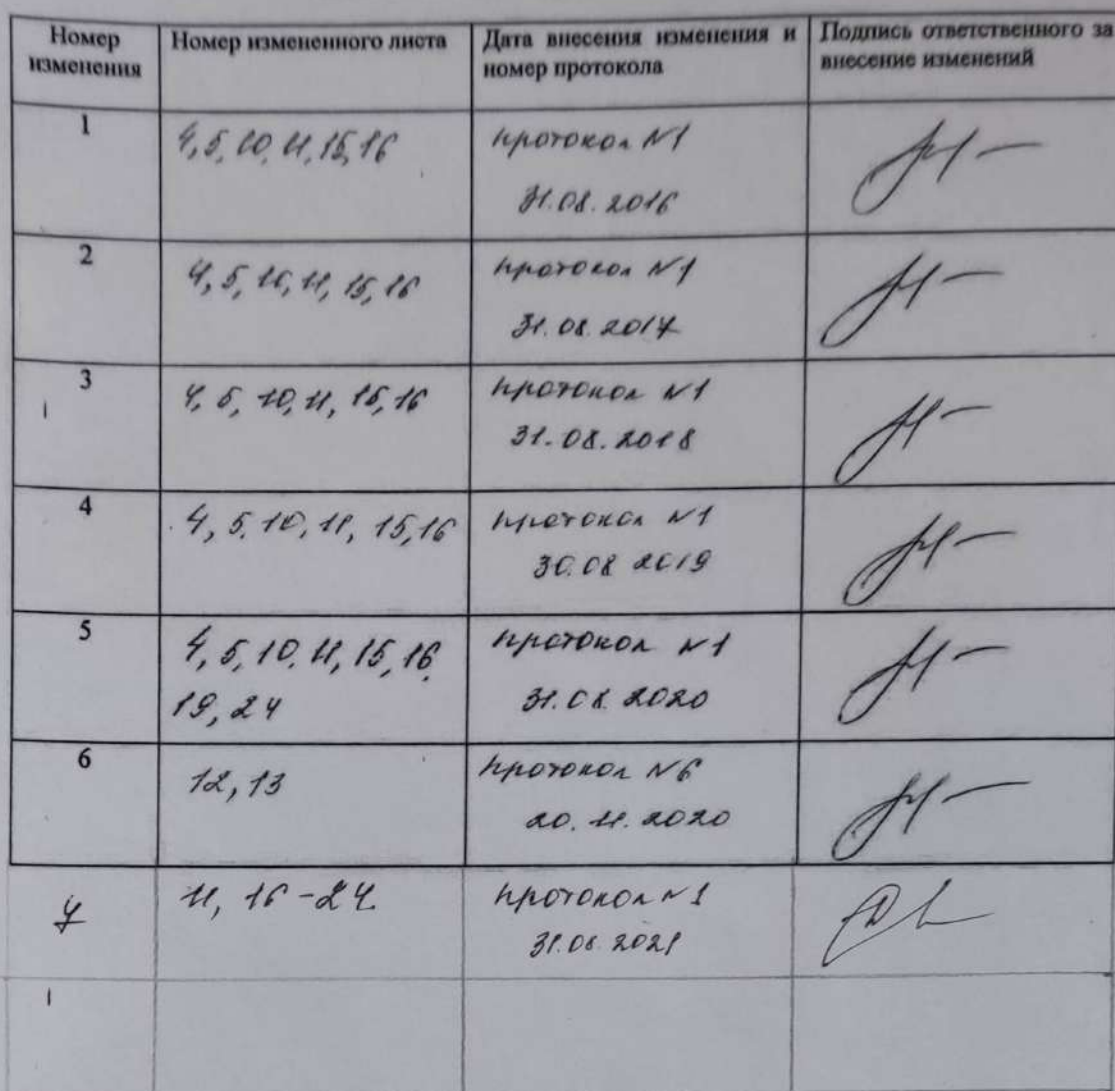 Номер изменения
Номер измененного листа
Дата внесения изменения и номер протокола
Подпись ответственного за внесение изменений
1
4, 5, 10, 11, 15, 16
протокол №1
31.08.2016
2
4, 5, 10, 11, 15, 16
протокол №1
31.08.2017
3
4, 5, 10, 11, 15, 16
протокол №1
31.08.2018
4
4, 5, 10, 11, 15, 16
протокол №1
30.08 2019
5
4, 5, 10, 11, 15, 16,
19, 24
протокол №1
31.08.2020
6
12, 13
протокол №6
20.11.2020
7
11, 16-24
протокол №1
31.08.2021